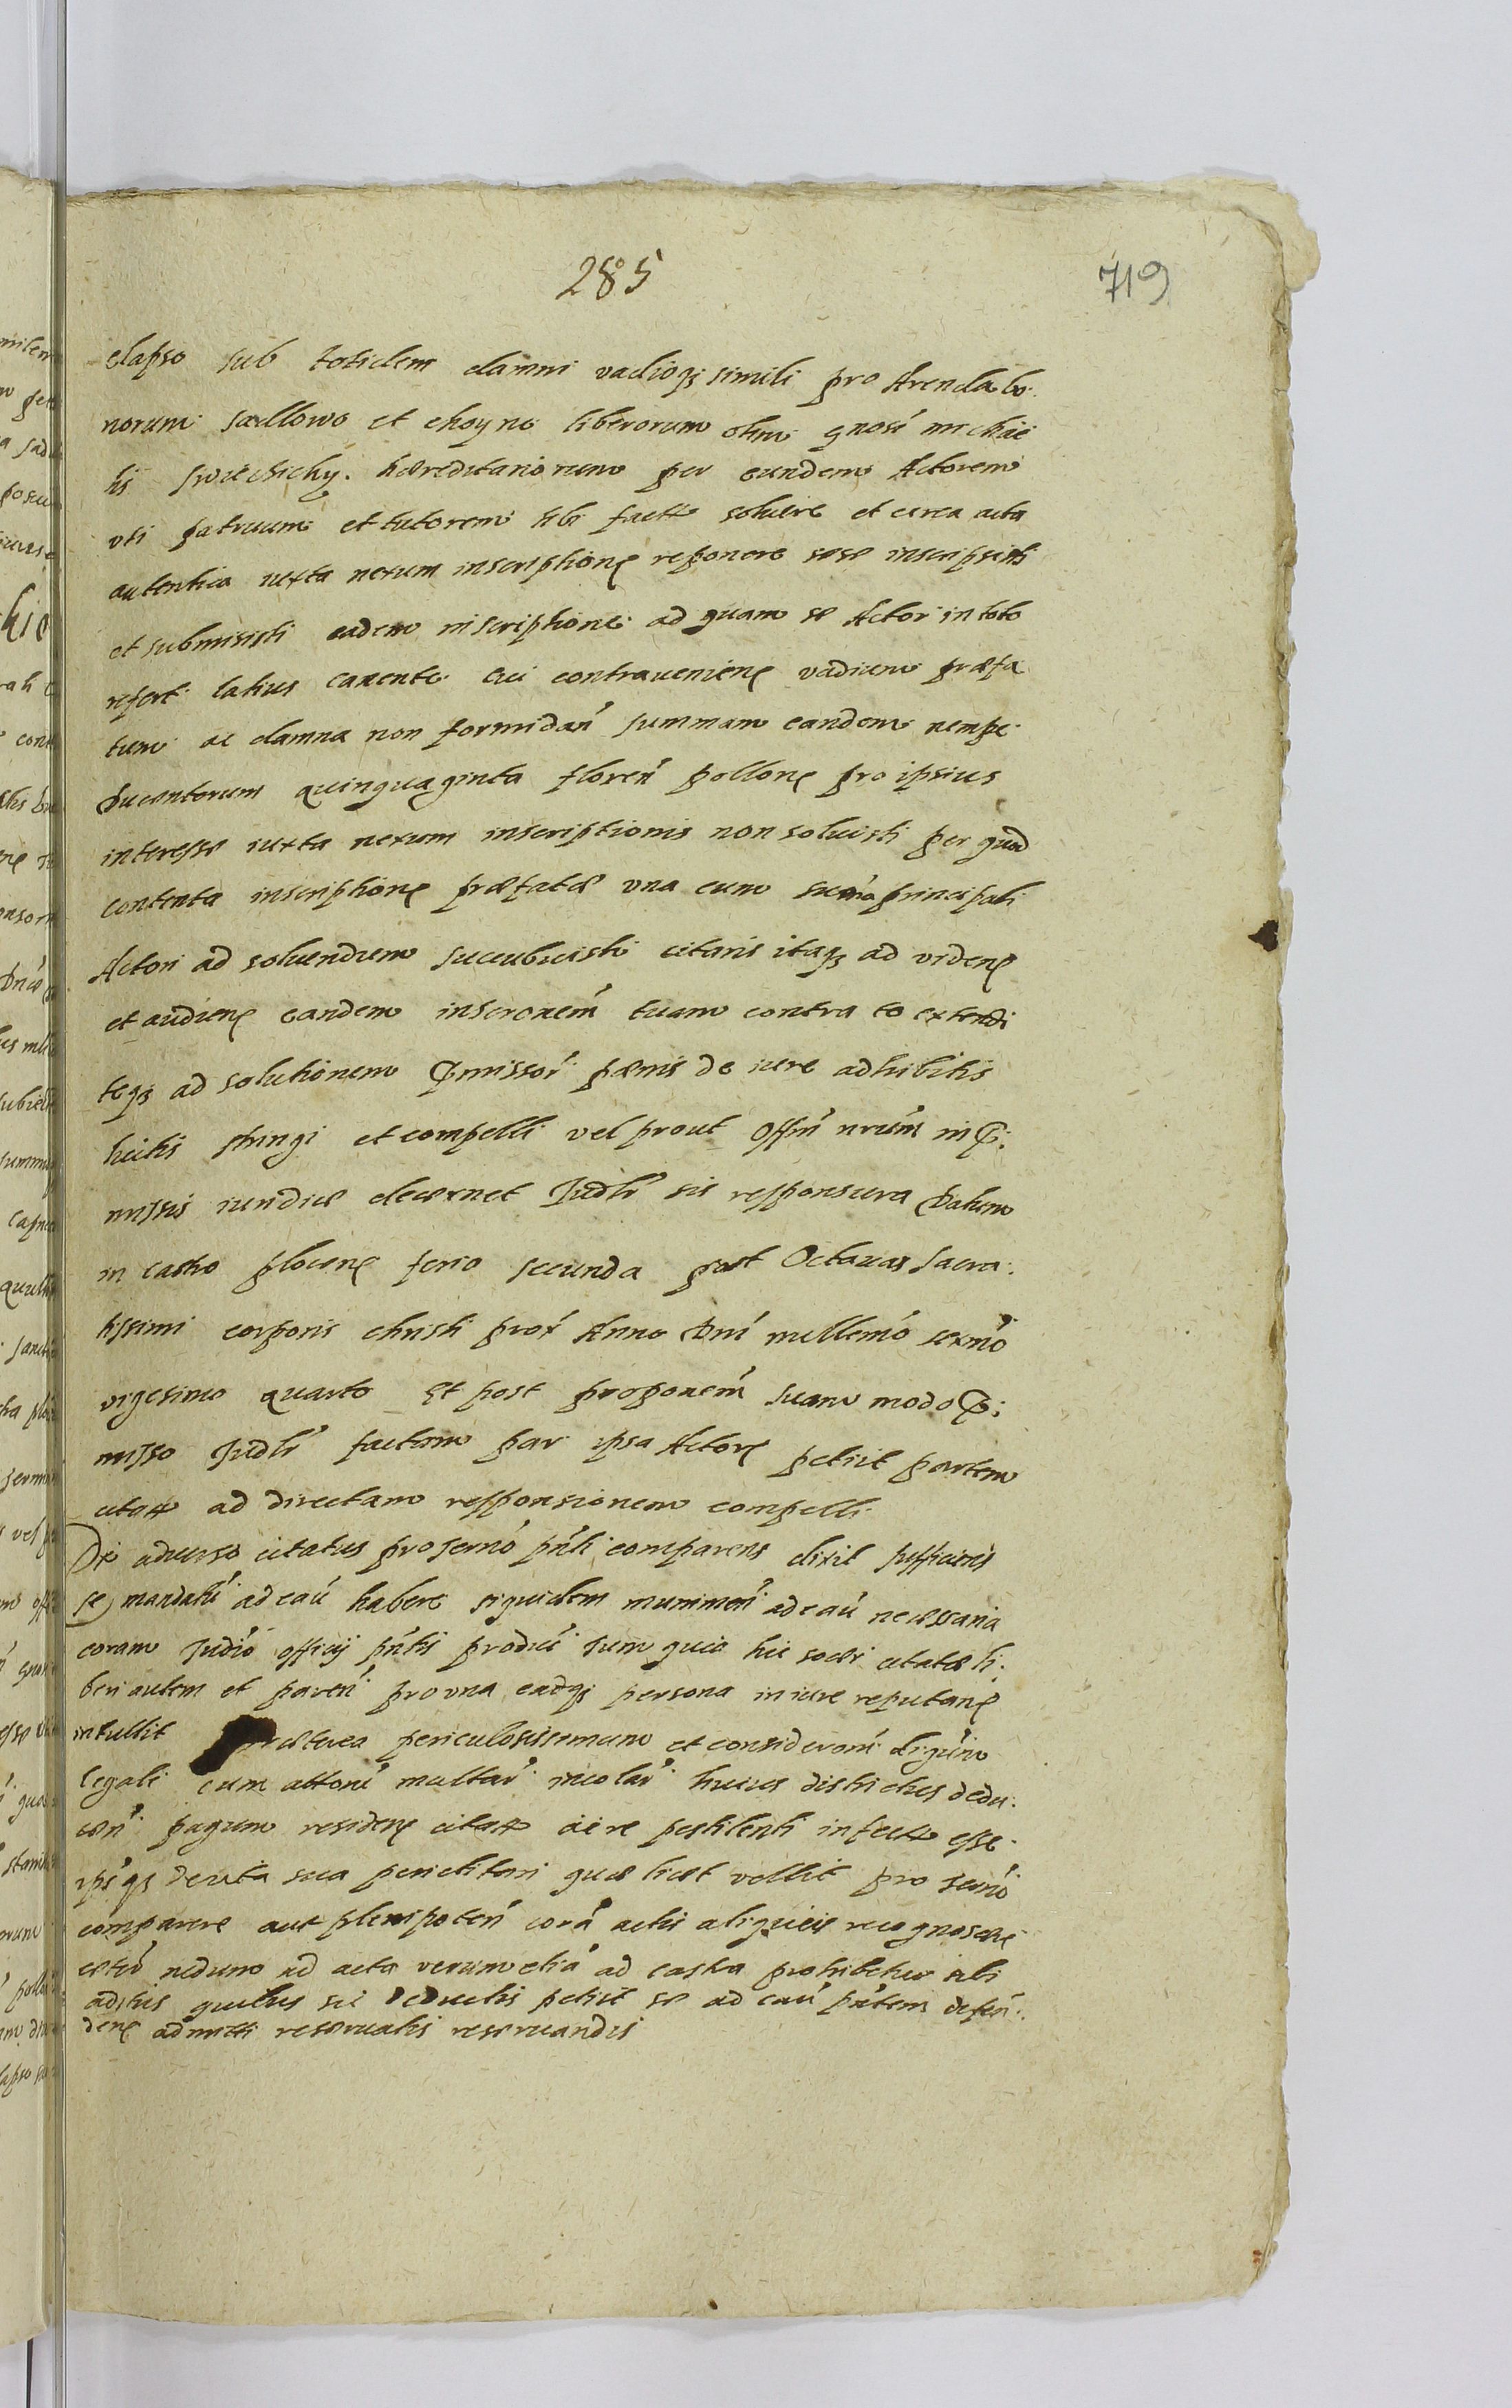 285
719
elapso sub totidem damni vadioqȝ simili pro Arenda bo:
norum Sadlowo et Choyno liberorum olim gnosi Michae
lis Swiechichy. hæreditariorum per eundem Actorem
vti patruum et tutorem sibi fact solvere et circa acta
autentica iuxta nexum inscription reponere sese inscripsisti
et submisisti eadem inscriptione ad quam se Actor in toto
refert latius canente cui contravenien vadium præfa
tum ac damna non formidan summam eandem nempe
Ducentorum quinquaginta floren pollon pro ipsius
interesse iuxta nexum inscriptionis non solvisti per quod
contenta inscription præfatæ vna cum suma principali
Actori ad solvendum succubuisti citaris itaqȝ ad viden
et audien eandem inscronem tuam contra te extendi
teqȝ ad solutionem pmissor pænis de iure adhibitis
licitis stringi et compelli vel prout Offm nrum in p:
missis iuridice decernet Judlr sis responsura Datum
in castro plocen feria secunda post Octavas Sacra:
tissimi corporis christi prox Anno Dni millemo sexmo
vigesimo quarto Et post proponem suam modo p:
misso Judlr factam par ipsa Actor petiit partem
citat ad directam responsionem compelli
Ex adverso citatus pro termo pnti comparens dixit sufficiens
se mandatu ad cau habere siquidem munimen ad cau necessaria
coram Judio officij pntis produci tum quia hic soceri citatæ li:
beri autem et paren pro vna eadqȝ persona in iure reputan
intullit Præterea periculosissimum et consideroni dignum
legali cum attoni multar incolar huius districtus dedu:
cen pagum residen citat aere pestilenti infect esse
ipsqȝ de vita sua periclitari quæ licet vellit pro termo
comparere aut plenipoten cora actis aliquis recognoscere
cetru nedum ad acta verum etia ad castra prohibetur sibi
aditus quibus sic deductis petiit se ad cau pntem defen:
den admitti reservatis reservandis